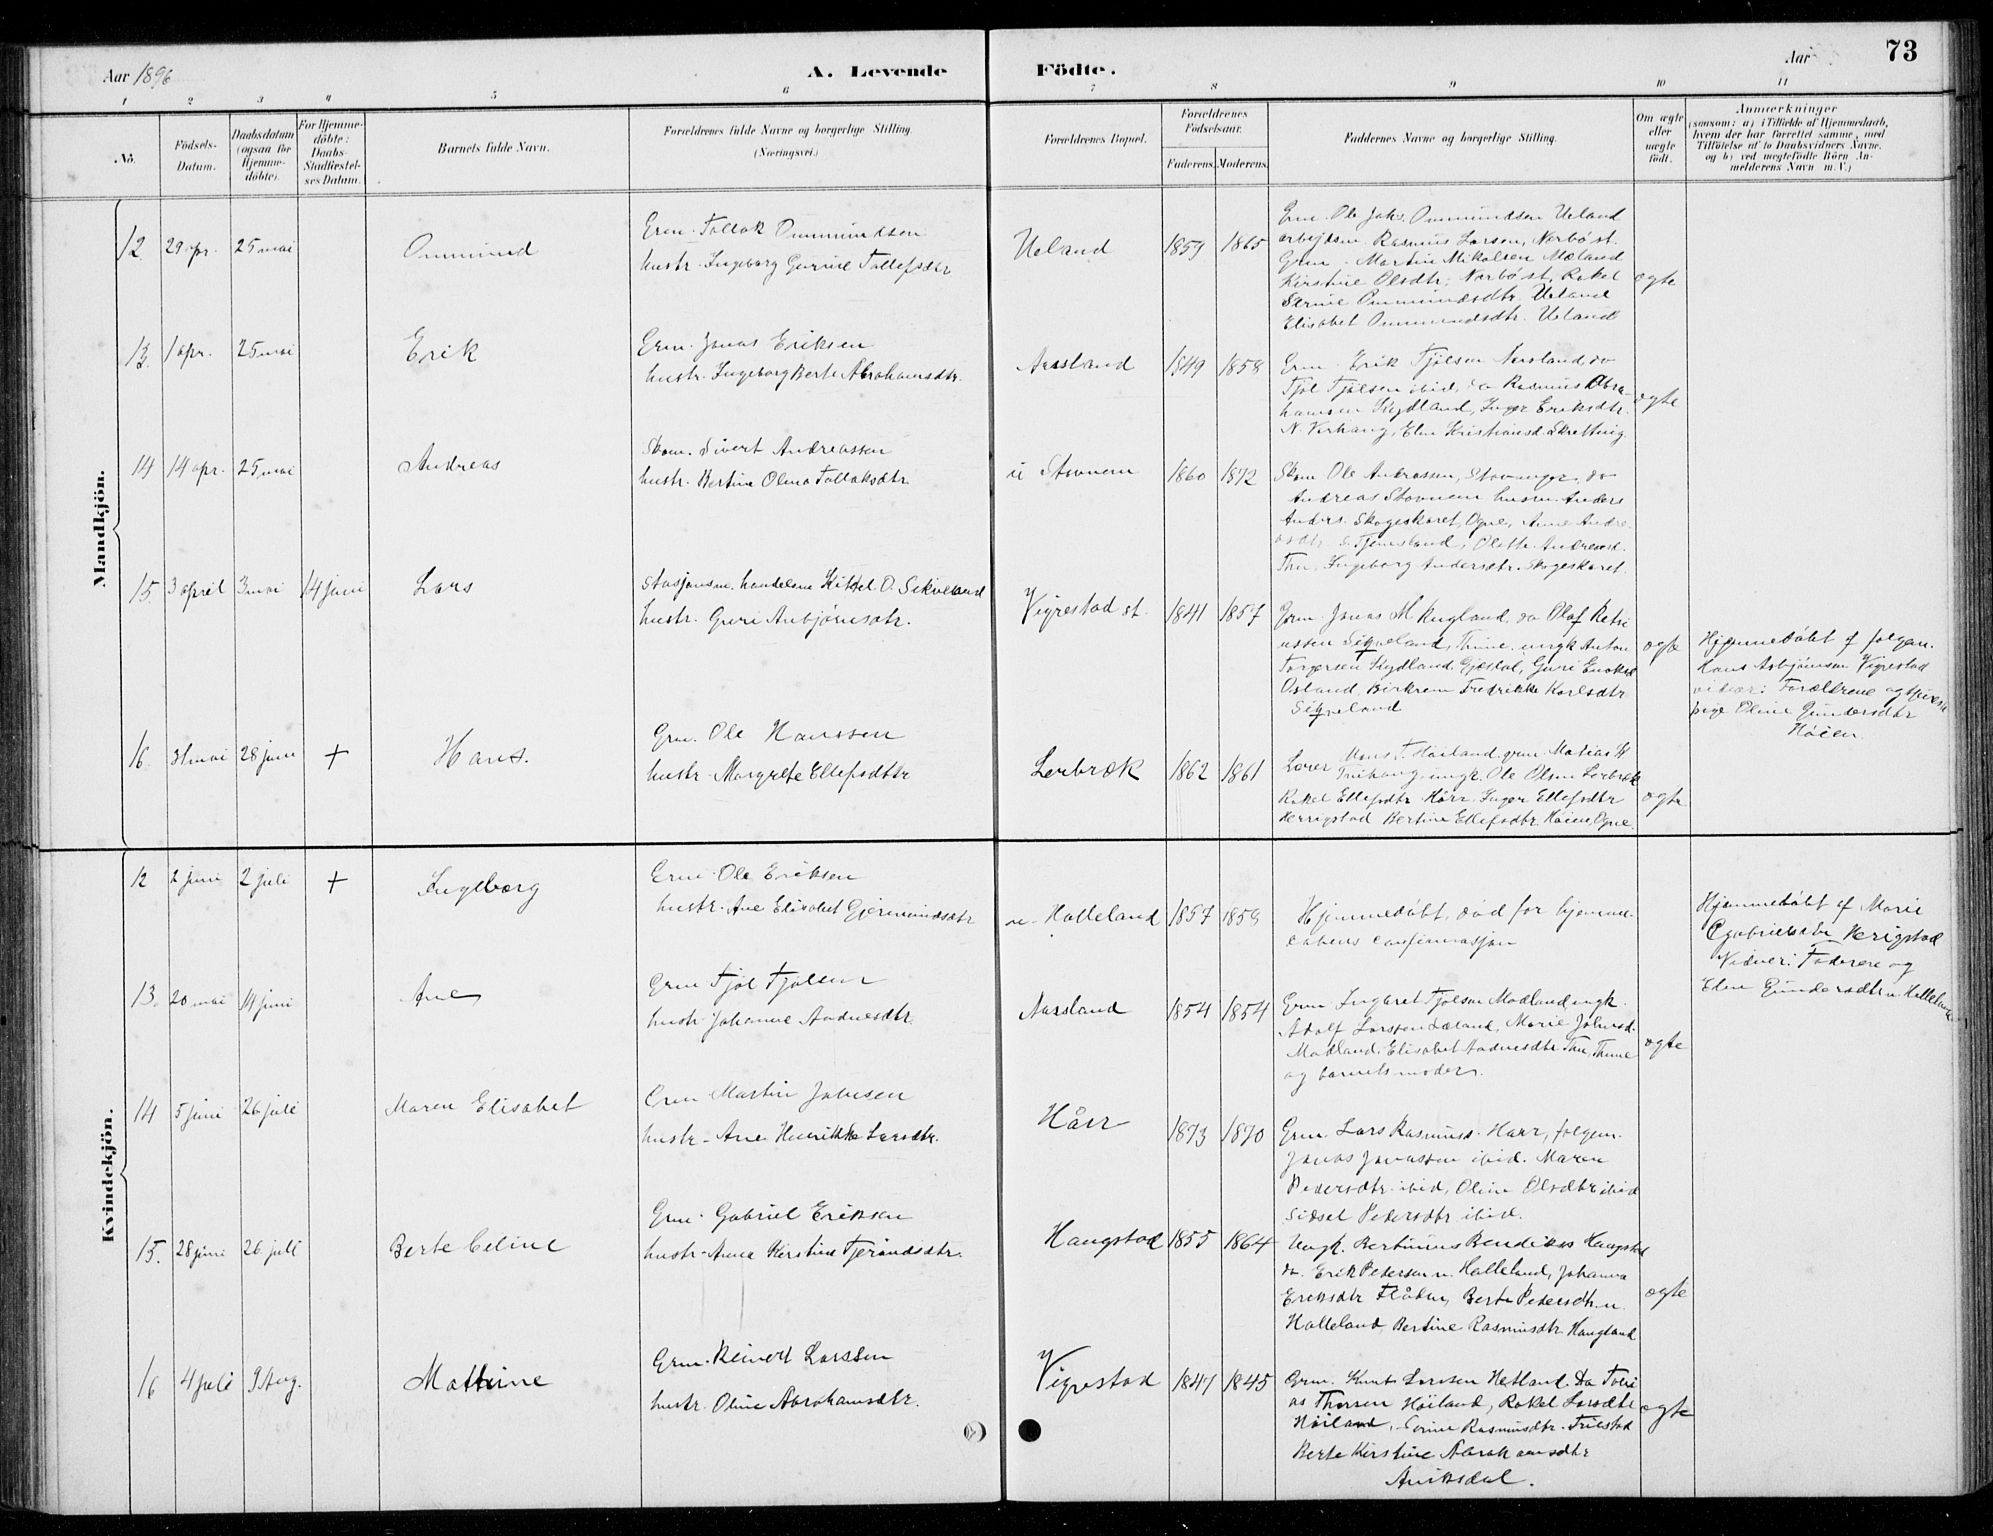 Aar 1896
A. Levende
Födte.
Aar
73
1 2 3 4 5 6 7 8 9 10 11
No.
Födsels-
Datum.
Daabsdatum
(ogsaa for
Hjemme-
döbte).
For Hjemme-
döbte:
Daabs-
Stadfæstel-
ses Datum.
Barnets fulde Navn.
Forældrenes fulde Navne og borgerlige Stilling.
(Næringsvei.)
Forældrenes Bopæl.
Forældrenes
Födselsaar.
Faderens. Moderens.
Faddernes Navne og borgerlige Stilling.
Om ægte
eller
uægte
födt.
Anmærkninger
(saasom: a) i Tilfælde af Hjemmedaab,
hvem der har forrettet samme, med
Tilföielse af to Daabsvidners Navne,
og b) ved uægtefödte Börn An-
melderens Navn m.V.)
Mandkjön.
12. 29 apr. 25 mai
Ommund
Grm. Tollak Ommundsen
hustr. Ingeborg Gurine Tollefsdtr
Ueland
1859 1865
Grm. Ole Johs. Ommundsen Ueland
arbejdsm Rasmus Larsen, Nærbø st.
Grm. Martin Mikalsen Mæland
Kirstine Olsdtr. Nærbø st, Rakel
Serine Ommundsdtr. Ueland
Elisabet Ommundsdtr. Ueland
ægte
13. 1 apr. 25 mai
Erik
Grm. Jonas Eriksen
hustr. Ingeborg Berte Abrahamsdtr.
Aarsland
1849 1858
Grm. Erik Fjølsen Aarsland do
Fjøl Fjølsen ibid, do Rasmus Abra-
hamsen Kydland, Inger Eriksdtr.
N. Varhaug, Elen Kristiansd. Skretting.
ægte
14 14 apr. 25 mai
Andreas
Skom. Sivert Andreassen
hustr. Bertine Olena Tollaksdtr.
Stavnem
1860 1872
Skom Ole Andreassen, Stavanger, do
Andreas Stavnem husm. Anders
Anders. Skogeskaret, Ogne, Anne Andre-
asdtr. S. Tjemsland, Olette Andreasd.
Thu, Ingeborg Andersdtr. Skogeskaret
15. 3 april 3 mai 14 juni
Lars
Stasjonsm. handelsm. Kittel O. Sikveland
hustr. Guri Anbjørnsdtr.
Vigrestad st.
1841 1857
Grm. Jonas M Kugland, do Olaf
Siqveland, Thime, ungk Anton
Torgersen Kydland, Gjesdal, Guri Enoksd
Osland, Birkrem Fredrikke Karlsdtr
Siqveland
ægte
Hjemmedøbt af folgem.
Hans Asbjørnsen Vigrestad
vidner: Forældrene og
pige Oline Gundersdtr
Høien.
16. 31 mai 28 juni +
Hans.
Grm. Ole Hanssen
hustr. Margrete Ellefsdtr
Lerbræk
1862 1861
Lærer Mons T. Høiland, grm. Matias
ungk. Ole Olsen Lerbræk
Rakel Ellefsdtr Hårr, Inger Ellefsdtr
Herrigstad Bertine Ellefsdtr. Høien, Ogne.
ægte
Kvindekjön.
12 2 juni 2 juli +
Ingeborg
Grm. Ole Eriksen
hustr. Ane Elisabet Gjermundsdtr
n. Halleland
1857 1858
Hjemmedøbt, død for hjemme-
dabens confirmasjon
Hjemmedøbt af Marie
Gabrielsdtr Herigstad
Vidner: Faderen og
Elen Gundersdtr n. Halleland
13. 20 mai 14 juni
Ane
Grm Fjøl Fjølsen
hustr Johanne Aadnesdtr.
Aarsland
1854 1854
Grm. Ingvret Fjølsen Madland ungk.
Adolf Larssen Læland, Marie Johnsd.
Madland, Elisabet Aadnesdtr Thu, Thime
og barnets moder.
ægte
14 5 juni 26 juli
Maren Elisabet
Grm Martin Johnsen
hustr. Ane Henrikke Larsdtr.
Hårr
1873 1870
Grm. Lars Rasmuss. Harr, folgem.
Jonas Jonassen ibid. Maren
Pedersdtr. ibid, Oline Olsdtr ibid
Sidsel Pedersdtr ibid.
15. 28 juni 26 juli
Berte Celine
Grm. Gabriel Eriksen
hustr. Anna Kirstine Fjerandsdtr.
Haugstad
1855 1864
Ungk. Bertinius Bendikss Haugstad
do. Erik Pedersen n. Halleland, Johanna
Eriksdtr Flåden, Berte Pedersdtr. n.
Halleland, Bertine Rasmusdtr. Haugland
ægte
16 4 juli 9 Aug.
Mathine
Grm. Reinert Larssen
hustr. Oline Abrahamsdtr.
Vigrestad
1847 1845
Grm. Knut Larssen Hetland Do Tobi
as Thorsen Høiland, Rakel Larsdtr
Høiland, Serine Rasmusdtr. Friestad
Berte Kirstine Abrahamsdtr
Aniksdal.
ægte